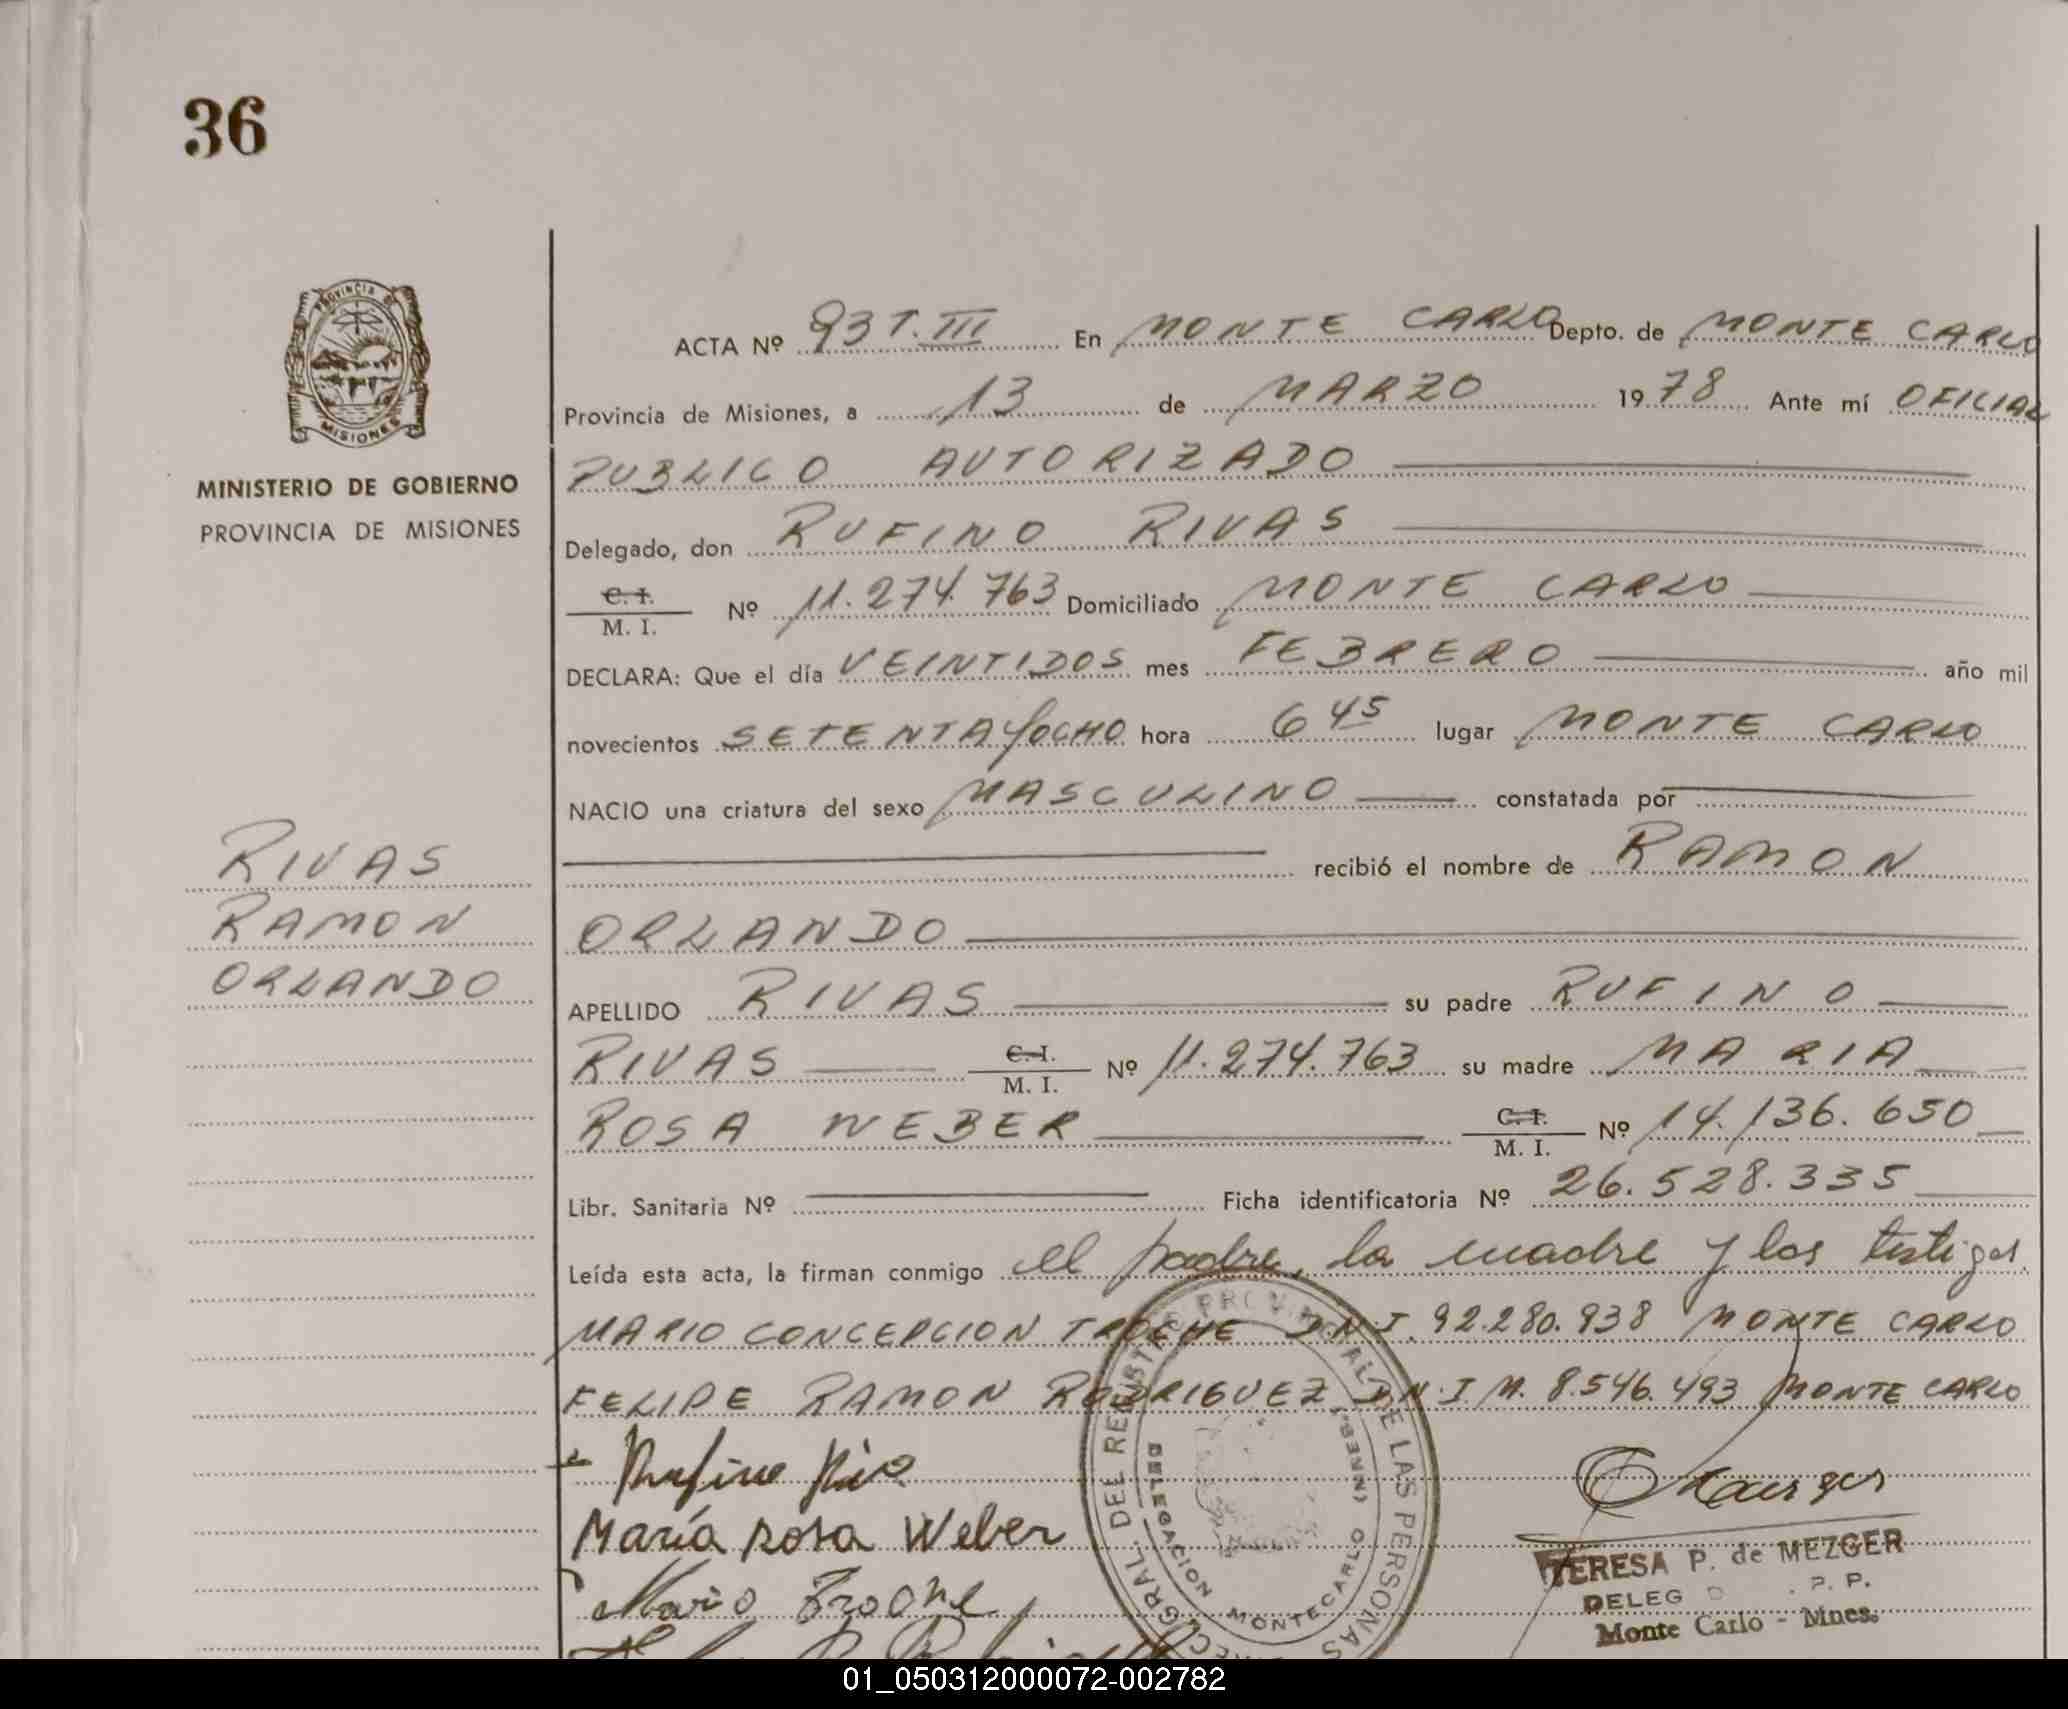 36
PROVINCIA DE
MISIONES
MINISTERIO DE GOBIERNO
PROVINCIA DE MISIONES
RIVAS
RAMON
ORLANDO
ACTA Nº 93 T. III En MONTE CARLO Depto. de MONTE CARLO
Provincia de Misiones, a 13 de MARZO 1978 Ante mí OFICIAL
PUBLICO AUTORIZADO
Delegado, don RUFINO RIVAS
C. I.
M. I. Nº 11.274.763 Domiciliado MONTE CARLO
DECLARA: Que el día VEINTIDOS mes FEBRERO año mil
novecientos SETENTA Y OCHO hora 6 45 lugar MONTE CARLO
NACIO una criatura del sexo MASCULINO constatada por
recibió el nombre de RAMON
ORLANDO
APELLIDO RIVAS su padre RUFINO
RIVAS C. I. M. I. Nº 11.274.763 su madre MARIA
ROSA WEBER C. I. M. I. Nº 14.136.650
Libr. Sanitaria Nº Ficha identificatoria Nº 26.528.335
Leída esta acta, la firman conmigo el padre, la madre y los testigos.
MARIO CONCEPCION TROCHE D.N.I. 92.280.938 MONTE CARLO
FELIPE RAMON RODRIGUEZ D.N.I. M. 8.546.493 MONTE CARLO
Rufino
María Rosa Weber
Mario
DEL REGISTRO PROVINCIAL DE LAS PERSONAS
DELEGACION MONTECARLO
GRAL.
TERESA P. de MEZGER
DELEG P. P.
Monte Carlo - Mnes.
01_050312000072-002782